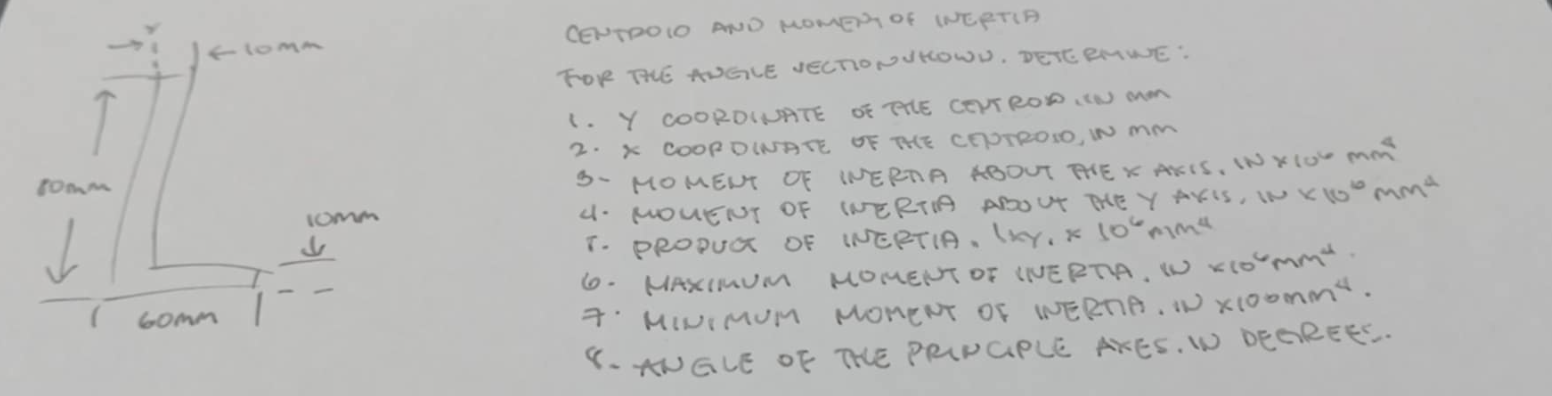 Y
10mm
80mm
10mm
60mm
CENTROID AND MOMENT OF INERTIA
FOR THE ANGLE SECTION SHOWN. DETERMINE:
1. Y COORDINATE OF THE CENTROID, IN mm
2. X COORDINATE OF THE CENTROID, IN mm
3- MOMENT OF INERTIA ABOUT THE X AXIS, IN X10⁶ mm⁴
4. MOMENT OF INERTIA ABOUT THE Y AXIS, IN X10⁶ mm⁴
5. PRODUCT OF INERTIA. Ixy. X 10⁶ mm⁴
6. MAXIMUM MOMENT OF INERTIA. IN X10⁶ mm⁴.
7. MINIMUM MOMENT OF INERTIA. IN X100mm⁴.
8- ANGLE OF THE PRINCIPLE AXES. IN DEGREES.